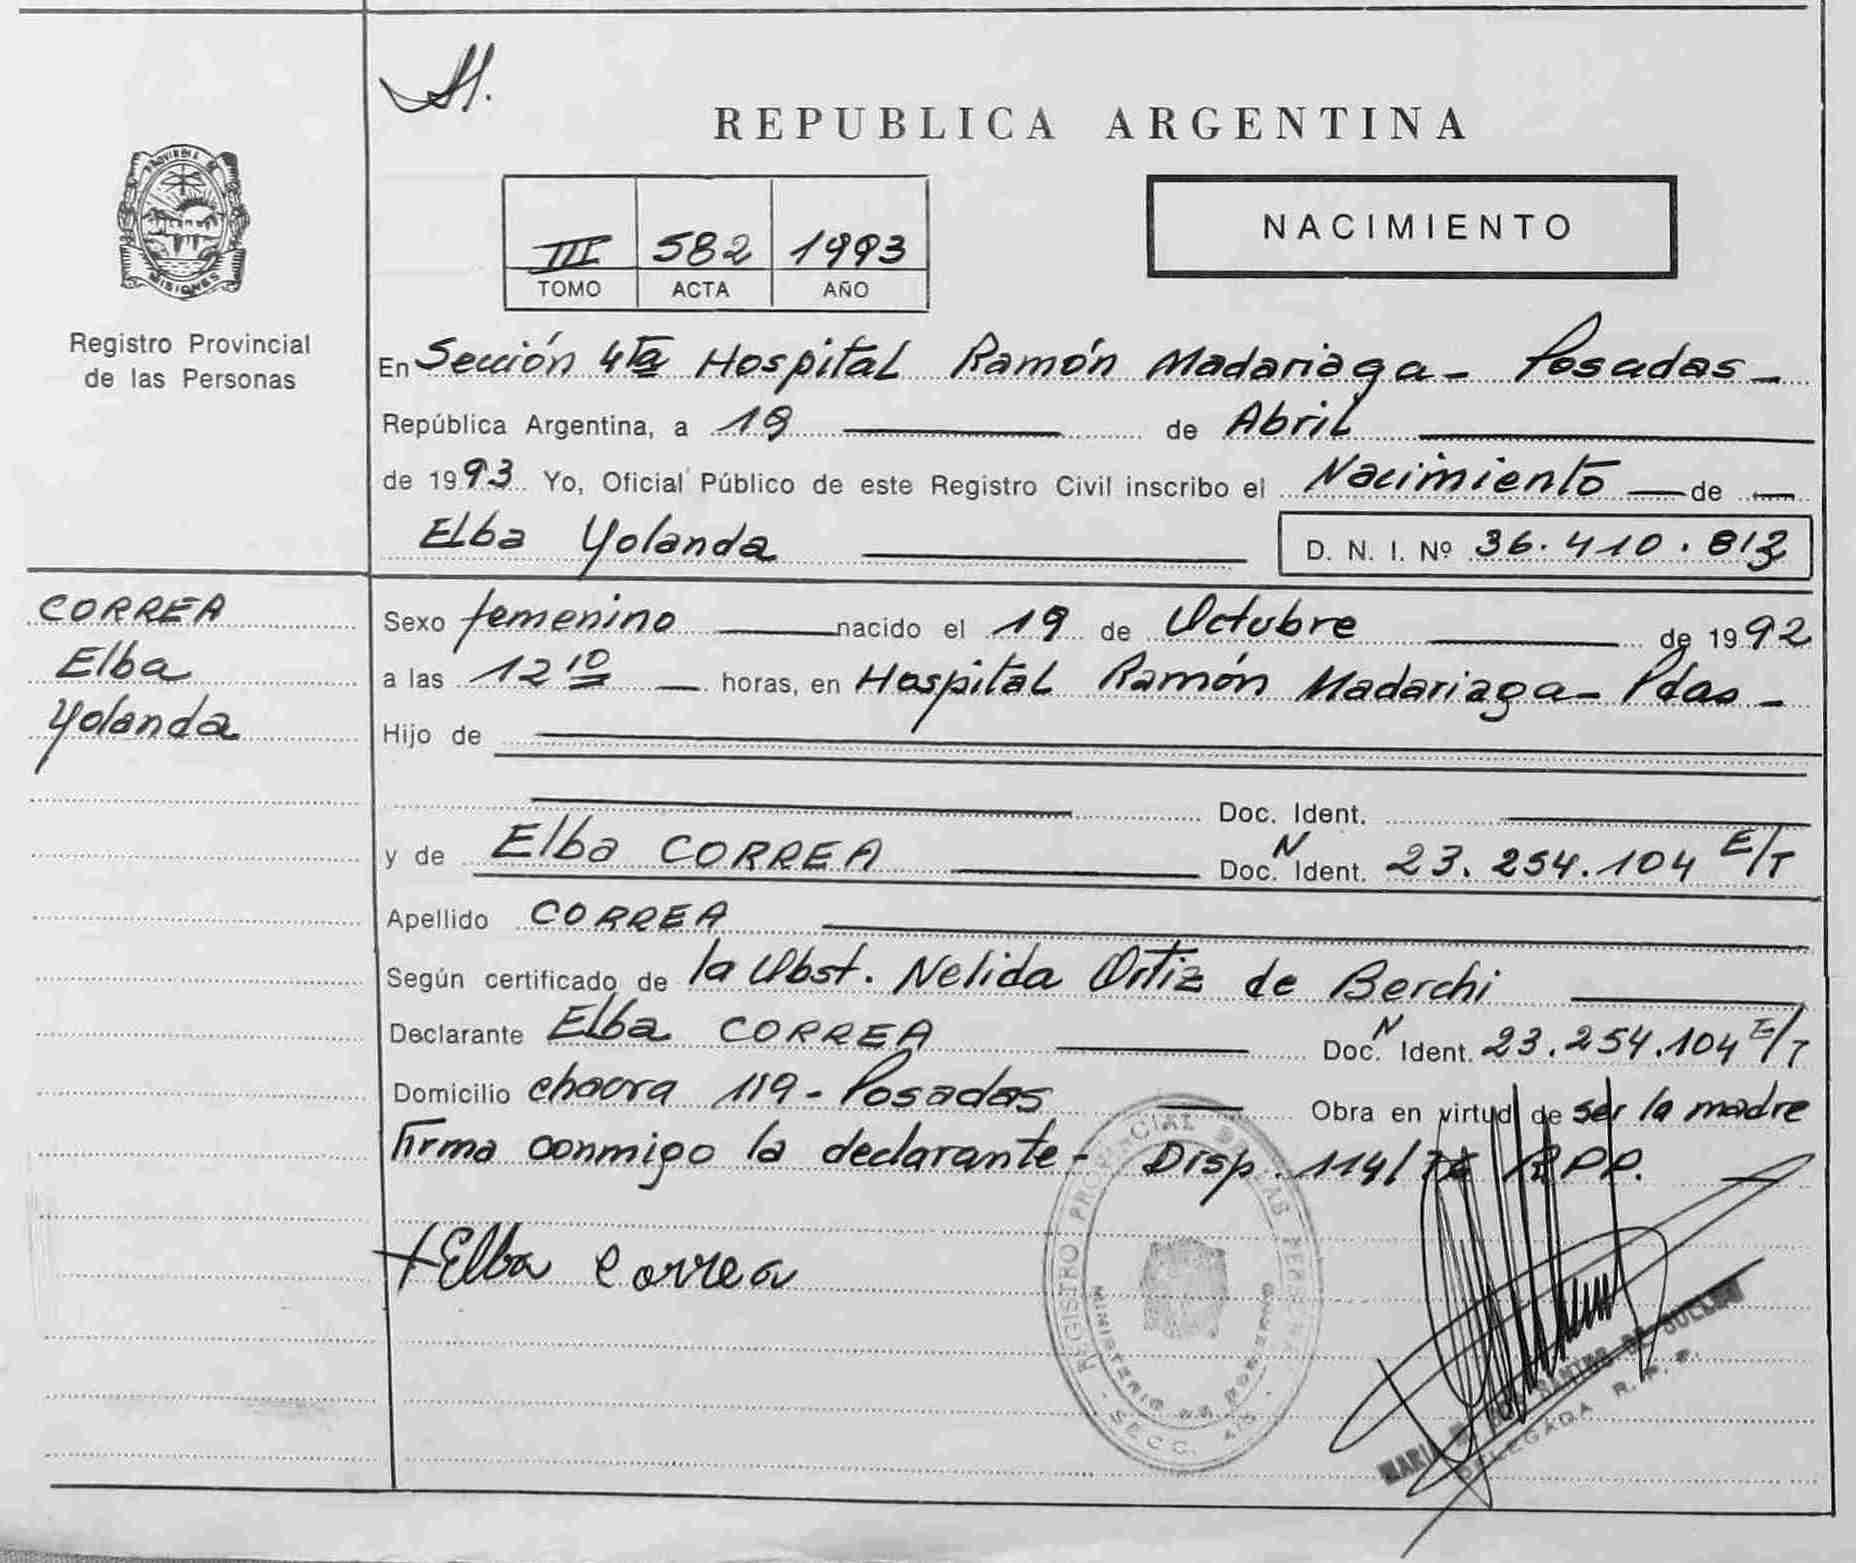 H.
REPUBLICA ARGENTINA
PROVINCIA DE
MISIONES
Registro Provincial
de las Personas
III 582 1993
TOMO ACTA AÑO
NACIMIENTO
En Sección 4ta Hospital Ramón Madariaga - Posadas -
República Argentina, a 19 de Abril
de 1993 Yo, Oficial Público de este Registro Civil inscribo el Nacimiento de
Elba Yolanda D. N. I. Nº 36.410.813
CORREA
Elba
Yolanda
Sexo femenino nacido el 19 de Octubre de 1992
a las 12 10 horas, en Hospital Ramón Madariaga - Pdas -
Hijo de
Doc. Ident.
y de Elba CORREA Doc. N Ident. 23.254.104 E/T
Apellido CORREA
Según certificado de la Obst. Nelida Ortiz de Berchi
Declarante Elba CORREA Doc. N Ident. 23.254.104 E/T
Domicilio chacra 119 - Posadas Obra en virtud de ser la madre
firma conmigo la declarante - Disp. 114/ RPP.
Elba Correa
REGISTRO PROVINCIAL DE LAS PERSONAS
MINISTERIO DE GOBIERNO
SECC. 4ta
MARIA
DELEGADA R. P. P.